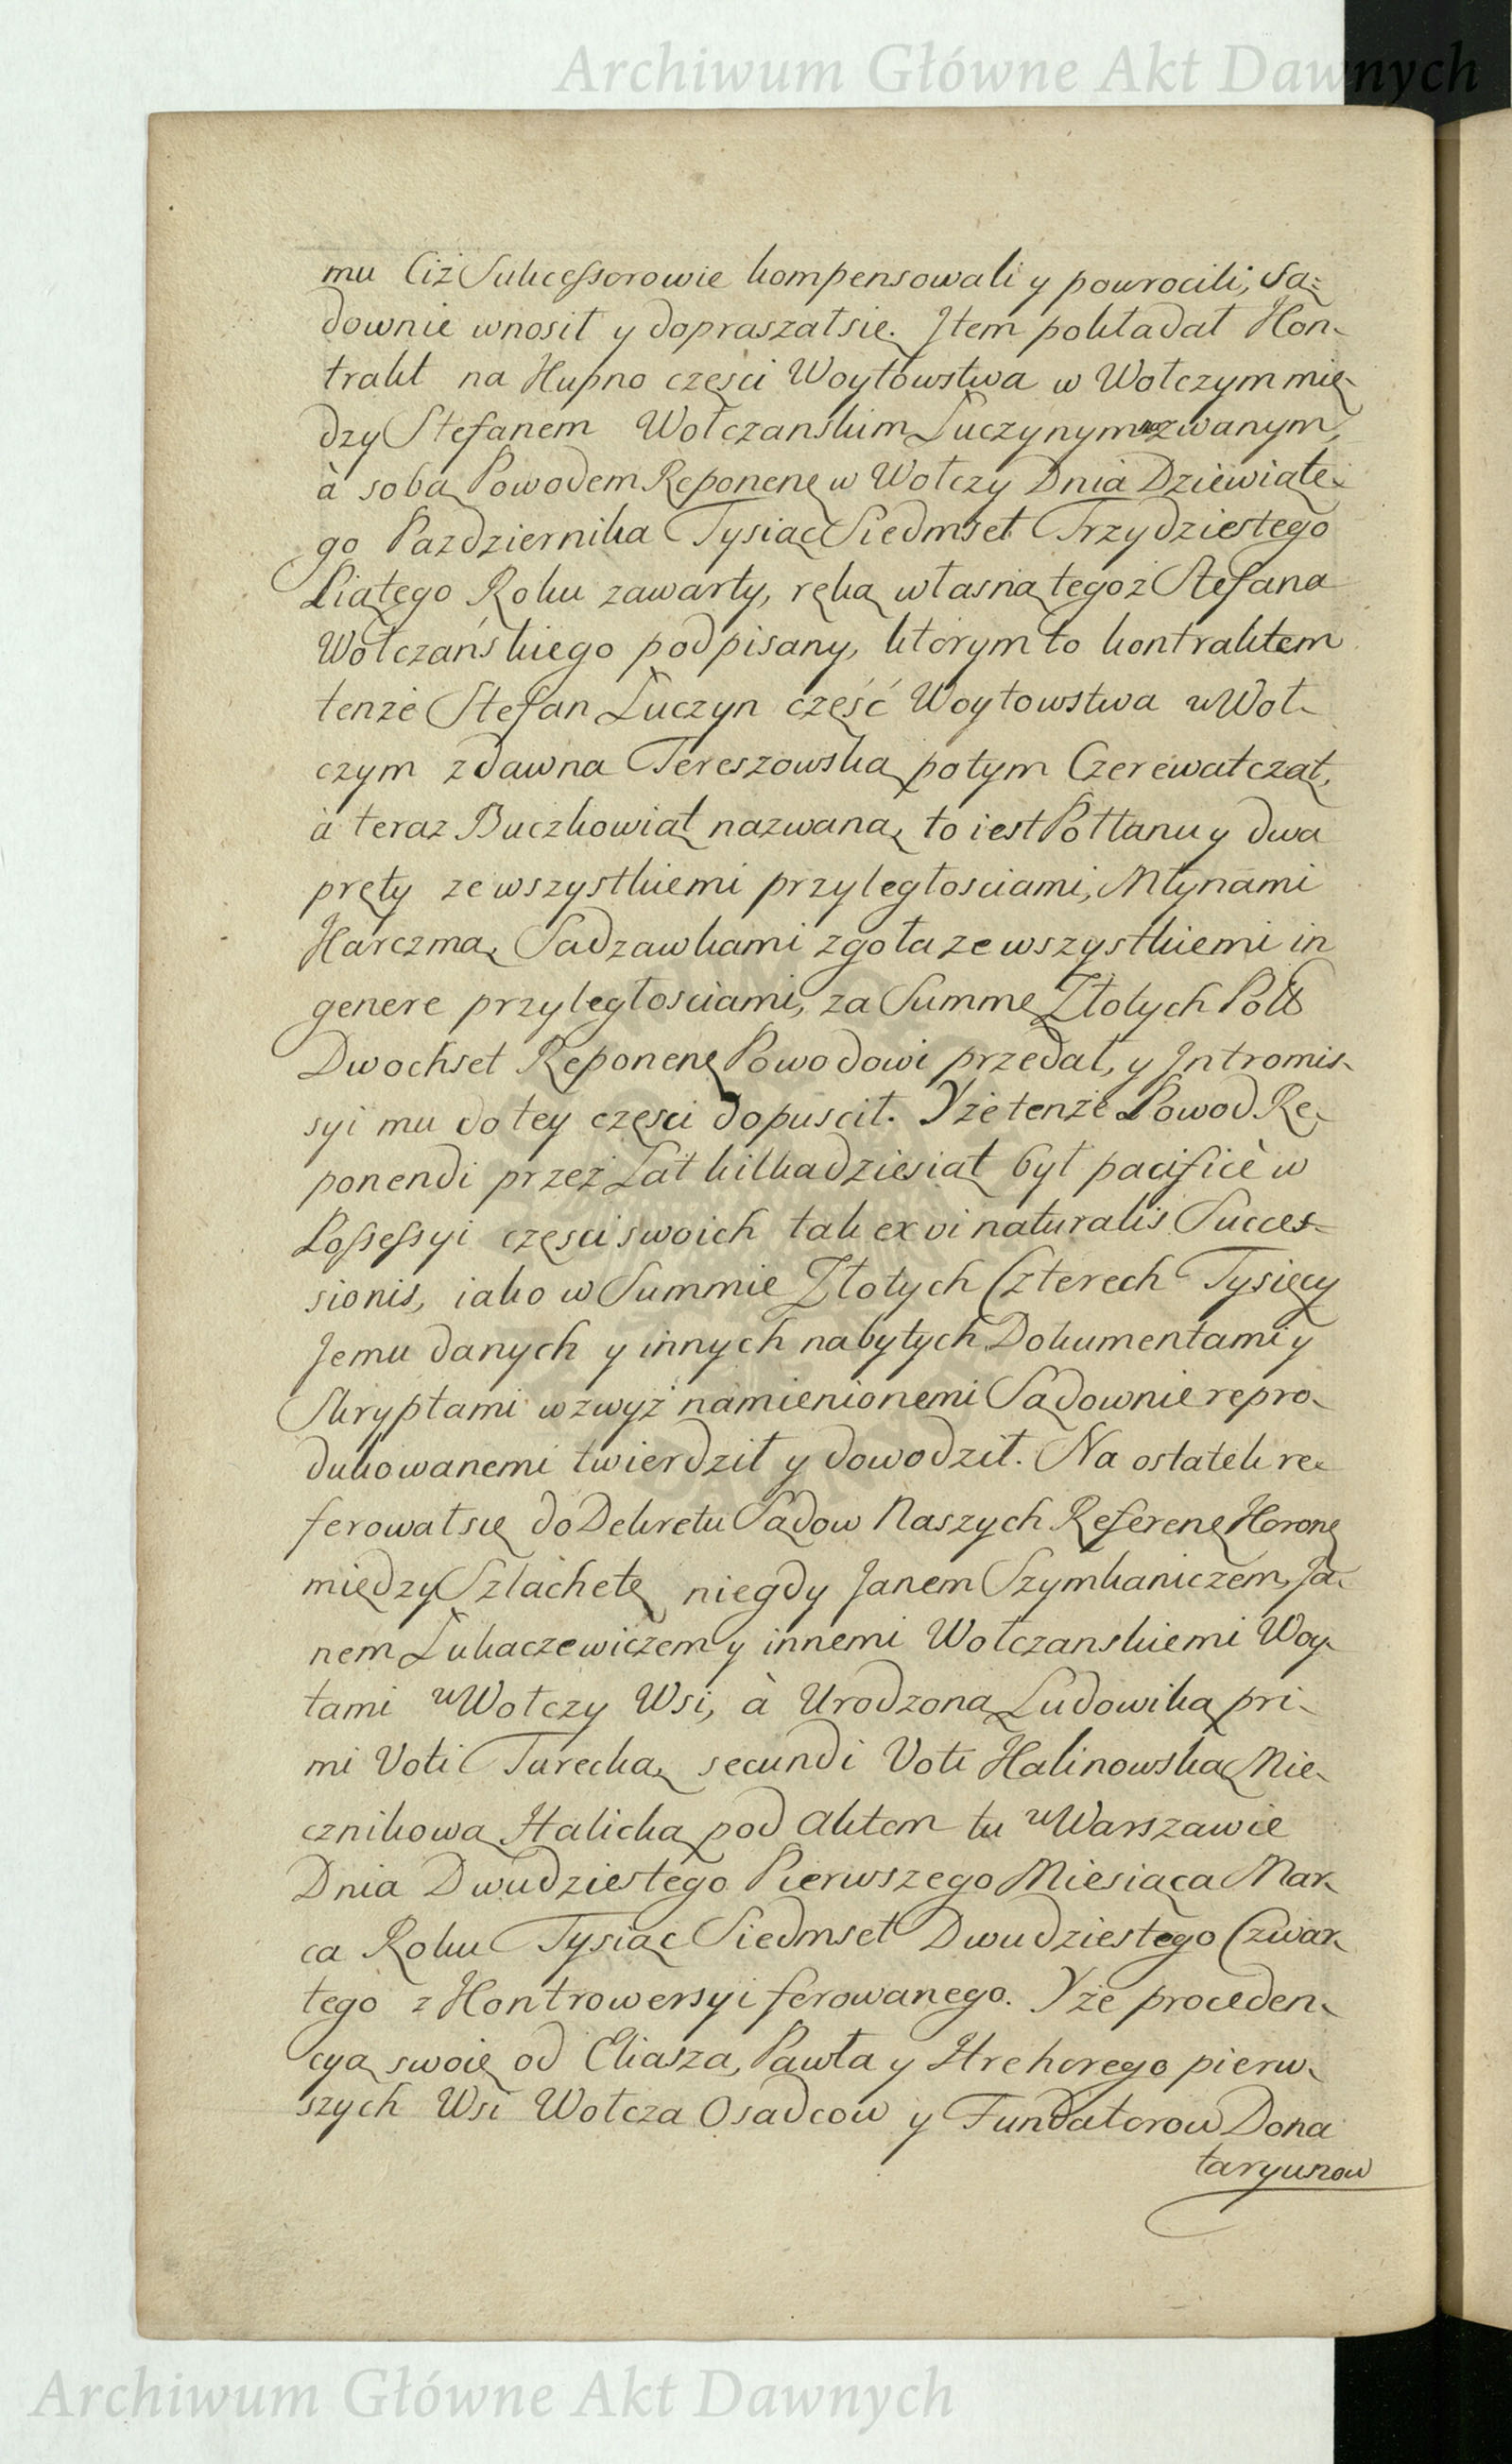 Archiwum Główne Akt Dawnych
mu Ciż Sukcessorowie kompensowali y powrocili, Są=
downie wnosił y dopraszał się. Item pokładał Kon-
trakt na Kupno częsci Woytowstwa w Wołczym mię-
dzy Stefanem Wołczanskim Łuczynym nazwanym,
à sobą Powodem Reponenę w Wołczy Dnia Dziewiąte-
go Pazdziernika Tysiąc Siedmset Trzydziestego
Piątego Roku zawarty, ręką własną tegoż Stefana
Wołczańskiego podpisany, ktorym to kontraktem
tenże Stefan Łuczyn część Woytowstwa w Woł-
czym zdawna Tereszowską potym Czerewatcząt,
à teraz Buczkowiąt nazwaną, to iest Poł łanu y dwa
pręty ze wszystkiemi przyległosciami, Młynami
Karczmą, Sadzawkami zgoła ze wszystkiemi in
genere przyległosciami, za Summę Złotych Polł
Dwochset Reponenę Powodowi przedał, y Intromis-
syi mu do tey częsci dopuscił. Y że tenże Powod Re-
ponendi przez Lat kilkadziesiąt był pacificè w
Possessyi częsci swoich tak ex vi naturalis Succes-
sionis, iako w Summie Złotych Czterech Tysięcy
Jemu danych y innych nabytych Dokumentami y
Skryptami wzwyż namienionemi Sądownie repro-
dukowanemi twierdził y dowodził. Na ostatek re-
ferował się do Dekretu Sądow Naszych Referenę Koronę
między Szlachetę niegdy Janem Szymkaniczem, Ja-
nem Łukaczewiczem y innemi Wołczanskiemi Woy-
tami w Wołczy Wsi, à Urodzoną Ludowiką pri-
mi Voti Turecką, secundi Voti Kalinowską Mie-
cznikową Halicką pod Aktem tu w Warszawie
Dnia Dwudziestego Pierwszego Miesiąca Mar-
ca Roku Tysiąc Siedmset Dwudziestego Czwar-
tego z Kontrowersyi ferowanego. Y że proceden-
cyą swoię od Eliasza, Pawła y Hrehorego pierw-
szych Wsi Wołcza Osadcow y Fundatorow Dona
taryuszow
Archiwum Główne Akt Dawnych